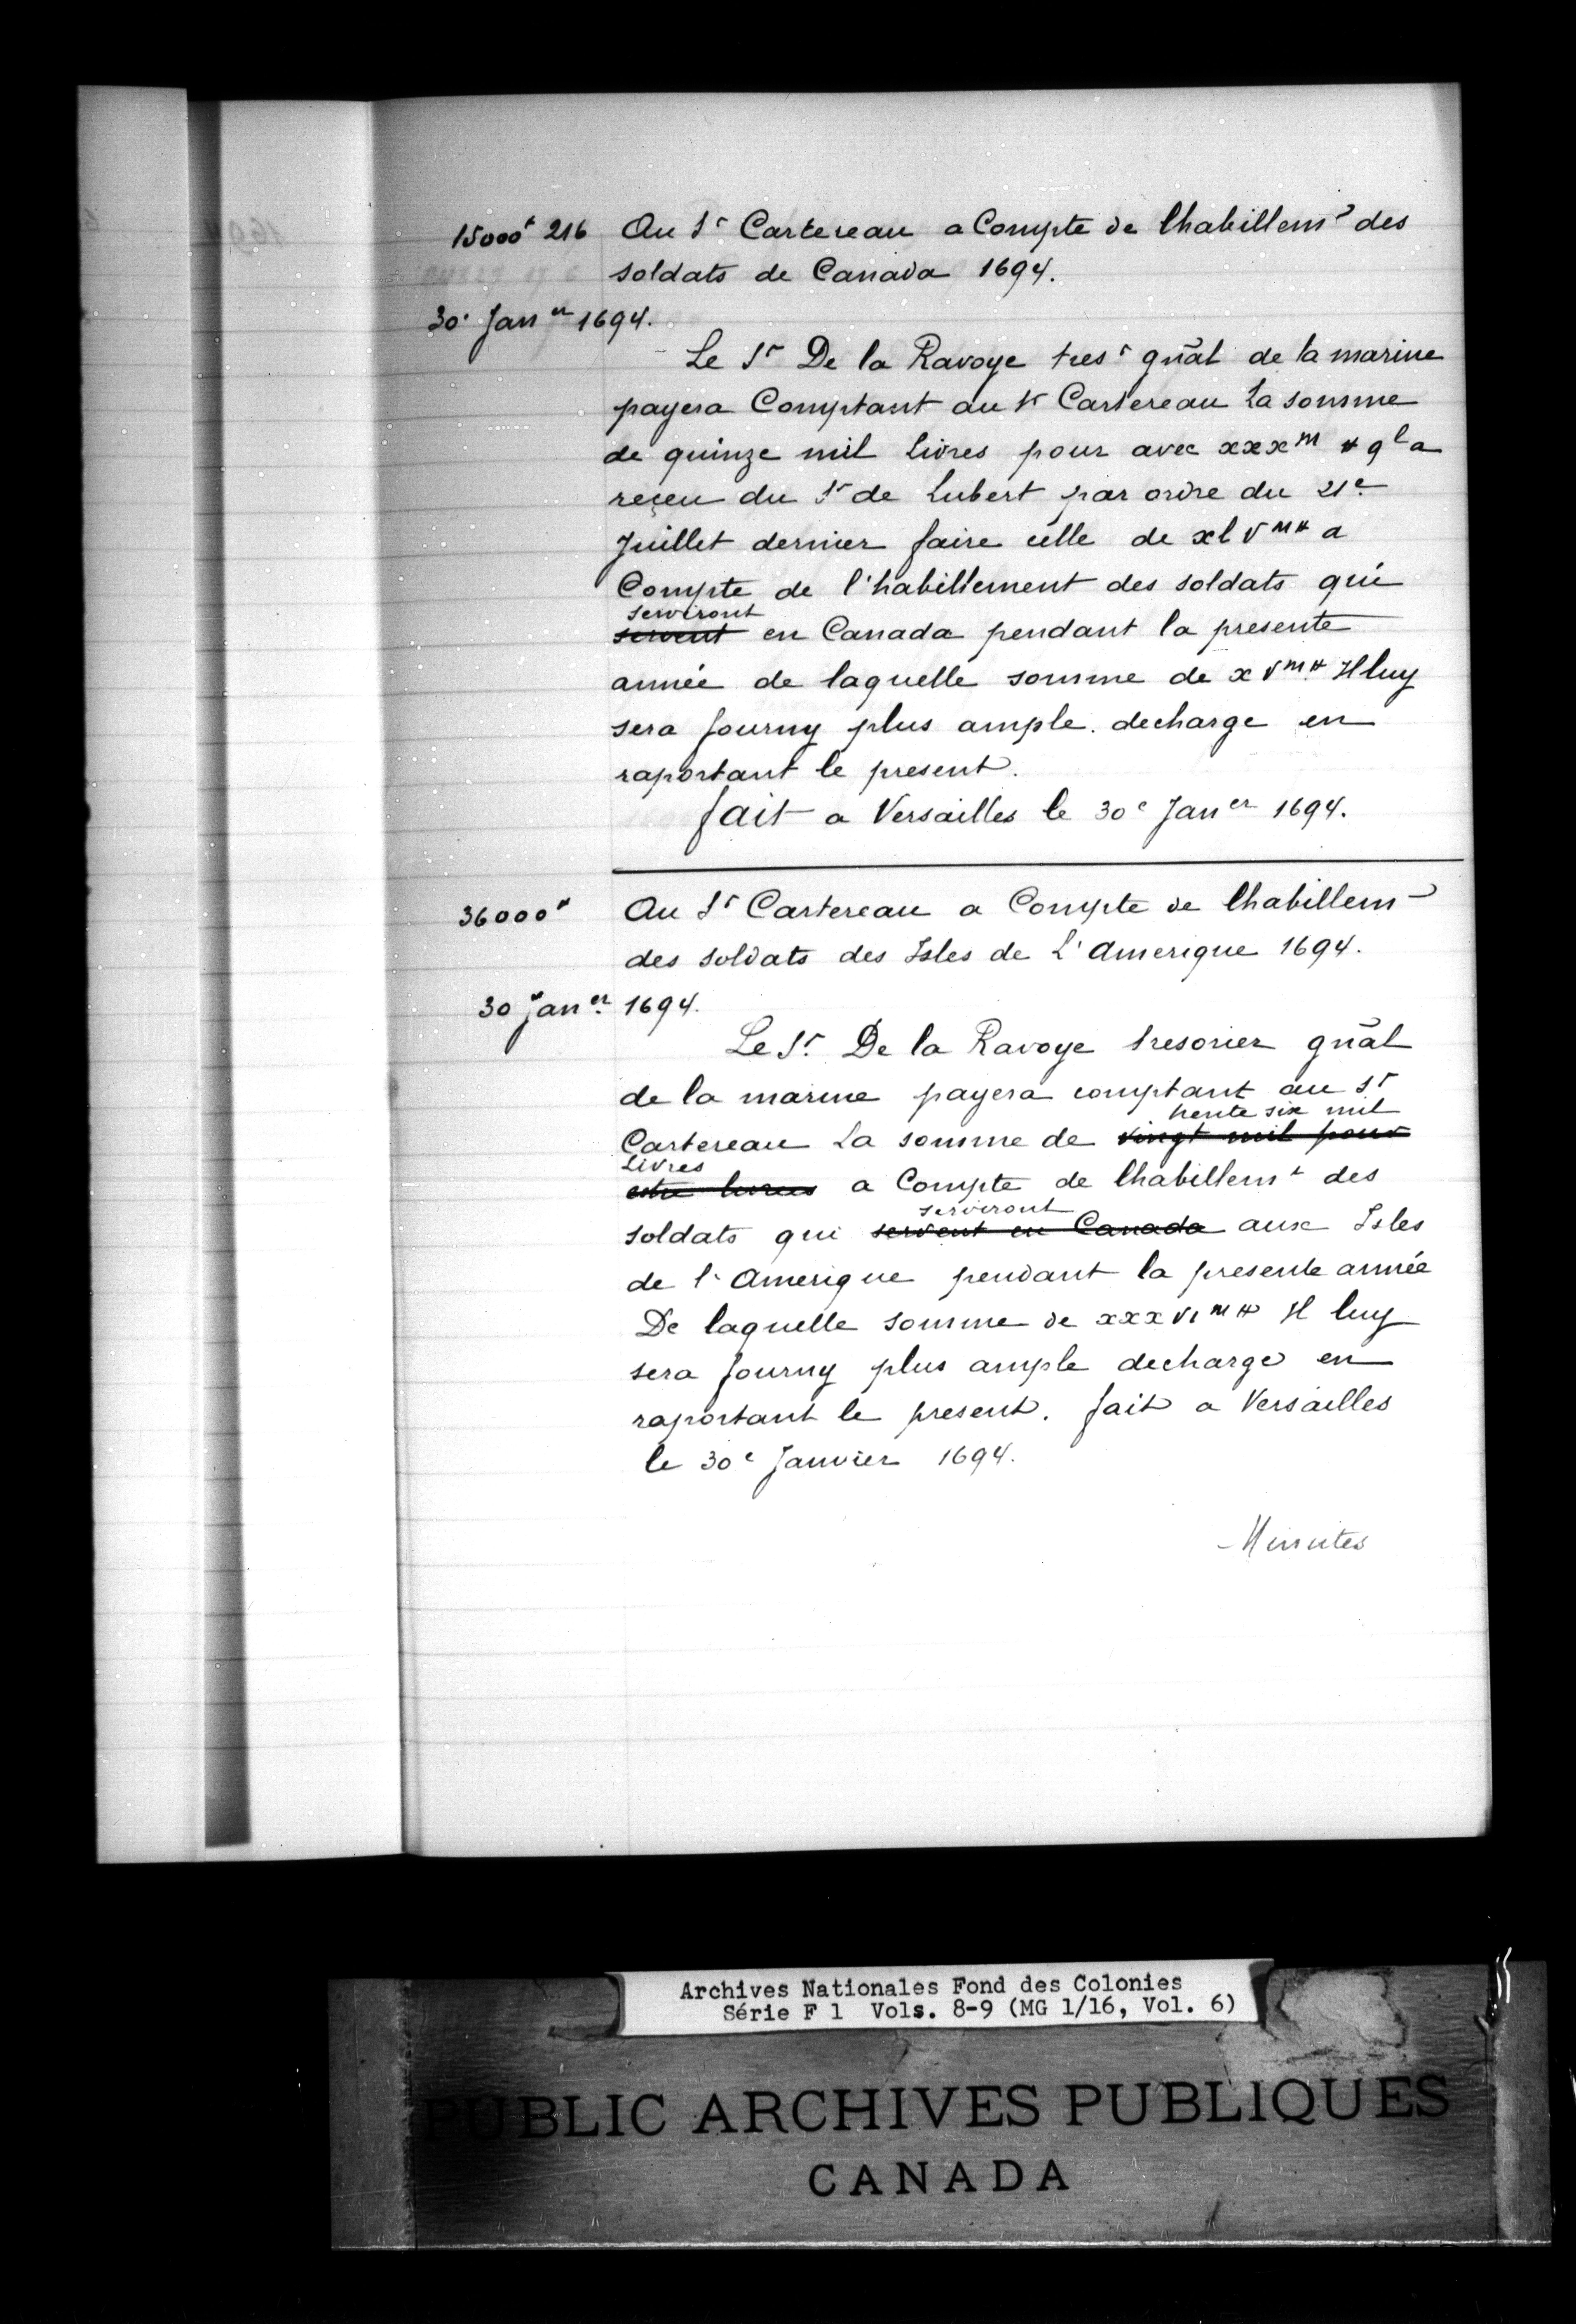 15000# 216 Au Sr Cartereau a Compte de lhabillemt des
soldats de Canada 1694.
30. Janer 1694.
Le Sr De la Ravoye tresr gnãl de la marine
payera Comptant au Sr Cartereau La somme
de quinze mil livres pour avec xxxm # ql a
reçeu du Sr de Lubert par ordre du 21e
Juillet dernier faire celle de xlvm# a
Compte de l'habillement des soldats qui
serviront
servent en Canada pendant la presente
année de laquelle somme de xvm# Il luy
sera fourny plus ample decharge en
raportant le present.
fait a Versailles le 30e Janer 1694.
36000# Au Sr Cartereau a Compte de lhabillemt
des soldats des Isles de L'Amerique 1694.
30 Janer 1694.
Le Sr. De la Ravoye tresorier gnãl
de la marine payera comptant au Sr
trente six mil
Cartereau La somme de vingt mil pour
Livres
estre livrees a Compte de lhabillemt des
serviront
soldats qui servent en Canada aux Isles
de l'Amerique pendant la presente année
De laquelle somme de xxxvim# Il luy
sera fourny plus ample decharge en
raportant le present. fait a Versailles
le 30e Janvier 1694.
Minutes
Archives Nationales Fond des Colonies
Série F 1 Vols. 8-9 (MG 1/16, Vol. 6)
PUBLIC ARCHIVES PUBLIQUES
CANADA